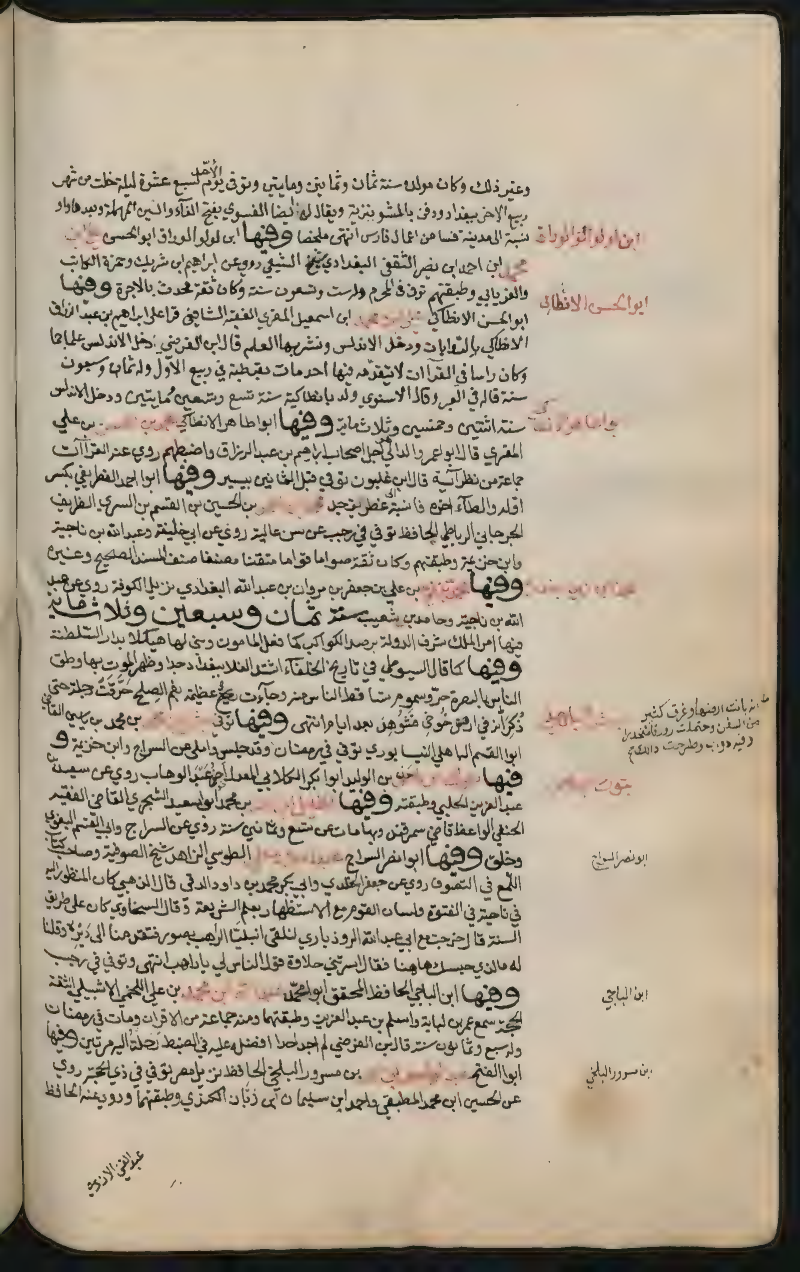 وغير ذلك وكان مولده سنة ثمان وثمانين ومايتين وتوفي يوم الأحد لسبع عشرة ليلة خلت من شهر
ربيع الاخر ببغداد ودفن بالشونيزية ويقال له ايضا الفسوي بفتح الفاء والسين المهملة وبعدها واو
نسبة لمدينة فسا من اعمال فارس انتهى ملخصا وفيها ابن لولو الوراق ابو الحسن علي بن
محمد ابن احمد ابن نصر الثقفي البغدادي الشيعي روي عن ابراهيم ابن شريك وحمزة الكاتب
والفريابي وطبقتهم توفي في المحرم وله ست وتسعون سنة وكان ثقة يحدث بالاجرة وفيها
ابو الحسن الانطاكي علي بن محمد ابن اسمعيل المقري الفقيه الشافعي قرا على ابراهيم بن عبد الرزاق
الانطاكي بالروايات ودخل الاندلس ونشر بها العلم قال ابن الفرضي ادخل الاندلس علما جما
وكان راسا في القراات لا يتقدمه فيها احد مات بقرطبة في ربيع الاول وله ثمان وسبعون
سنة قاله في العبر وقال الاسنوي ولد بانطاكية سنة تسع وتسعين ومايتين ودخل الاندلس
سنة اثنتين وخمسين وثلاثماية وفيها ابو طاهر الانطاكي محمد بن الحسن بن علي
المقري قال ابو عمرو الداني اجل اصحاب ابراهيم بن عبد الرزاق واضبطهم روي عنه القراات
جماعة من نظرائه قال ابن غلبون توفي قبل الثمانين بيسير وفيها ابو احمد الغطريفي بكسر
اوله والطاء اخره فا نسبة الى غطريف جد محمد بن احمد بن الحسين بن القسم بن السري الغطريف
الجرجاني الرباطي الحافظ توفي في رجب عن سن عالية روي عن ابي خليفة وعبد الله بن ناجية
وابن خزيمة وطبقتهم وكان ثقة صواما قواما متقنا مصنفا صنف المسند الصحيح وغيره
وفيها محمد بن زيد بن علي بن جعفر بن مروان بن عبد الله البغدادي نزيل الكوفة روي عن عبد
الله بن ناجية وحامد بن شعيب سنة ثمان وسبعين وثلاثماية
فيها امر الملك شرف الدولة برصد الكواكب كما فعل المامون وبنى لها هيكلا بدار السلطنة
وفيها كما قال السيوطي في تاريخ الخلفاء اشتد الغلا ببغداد جدا وظهر الموت بها ولحق
الناس بالبصرة حر وسموم تساقط الناس منه وجاءت ريح عظيمة بفم الصلح خرقت دجلة حتى
ذكر انه بانت ارضها وغرق كثير
من السفن وحملت زورقا منحدرا
وفيه دواب وطرحت ذلك في
ارض جوخي فشوهد بعد ايام انتهى وفيها توفي بشر بن محمد بن محمد بن يسين القاضي
ابو القسم الباهلي النيسابوري توفي في رمضان وقد جلس واملى عن السراج وابن خزيمة و
فيها تبوك بن الحسن بن الوليد ابو بكر الكلابي المعدل اخو عبد الوهاب روي عن سعيد بن
عبد العزيز الحلبي وطبقته وفيها الخليل بن احمد بن محمد ابو سعيد السجزي القاضي الفقيه
الحنفي الواعظ قاضي سمرقند وبها مات عن تسع وثمانين سنة روي عن السراج وابي القسم البغوي
وخلق وفيها ابو نصر السراج عبد الله بن علي الطوسي الزاهد شيخ الصوفية وصاحب كتاب
اللمع في التصوف روي عن جعفر الخلدي وابي بكر محمد بن داود الدقي قال الذهبي كان المنظور اليه
في ناحيته في الفتوة ولسان القوم مع الاستظهار بعلم الشريعة وقال السخاوي كان على طريق
السنة قال خرجت مع ابي عبد الله الروذباري لنلقى انبليا الراهب بصور فتقدمنا الى ديره وقلنا
له ما الذي حبسك هاهنا فقال اسرتني حلاوة قول الناس لي يا راهب انتهى وتوفي في رجب
وفيها ابن الباجي الحافظ المحقق ابو محمد عبد الله بن محمد بن علي اللخمي الاشبيلي الثقة
الحجة سمع محمد بن لبابة واسلم بن عبد العزيز وطبقتهما ومنه جماعة من الاقران ومات في رمضان
وله سبع وثمانون سنة قال ابن الفرضي لم اجد احدا افضله عليه في الضبط رحلت اليه مرتين وفيها
ابو الفتح عبد الواحد بن احمد بن مسرور البلخي الحافظ نزيل مصر توفي في ذي الحجة روي
عن الحسين ابن محمد المطبقي واحمد ابن سليمان ابن زبان الكندي وطبقتهما وروي عنه الحافظ
عبد الغني الازدي
ابن لولو الوراق
ابو الحسن الانطاكي
ابو طاهر الانطاكي
بشر الباهلي
تبوك
ابو نصر السراج
ابن الباجي
ابن مسرور البلخي